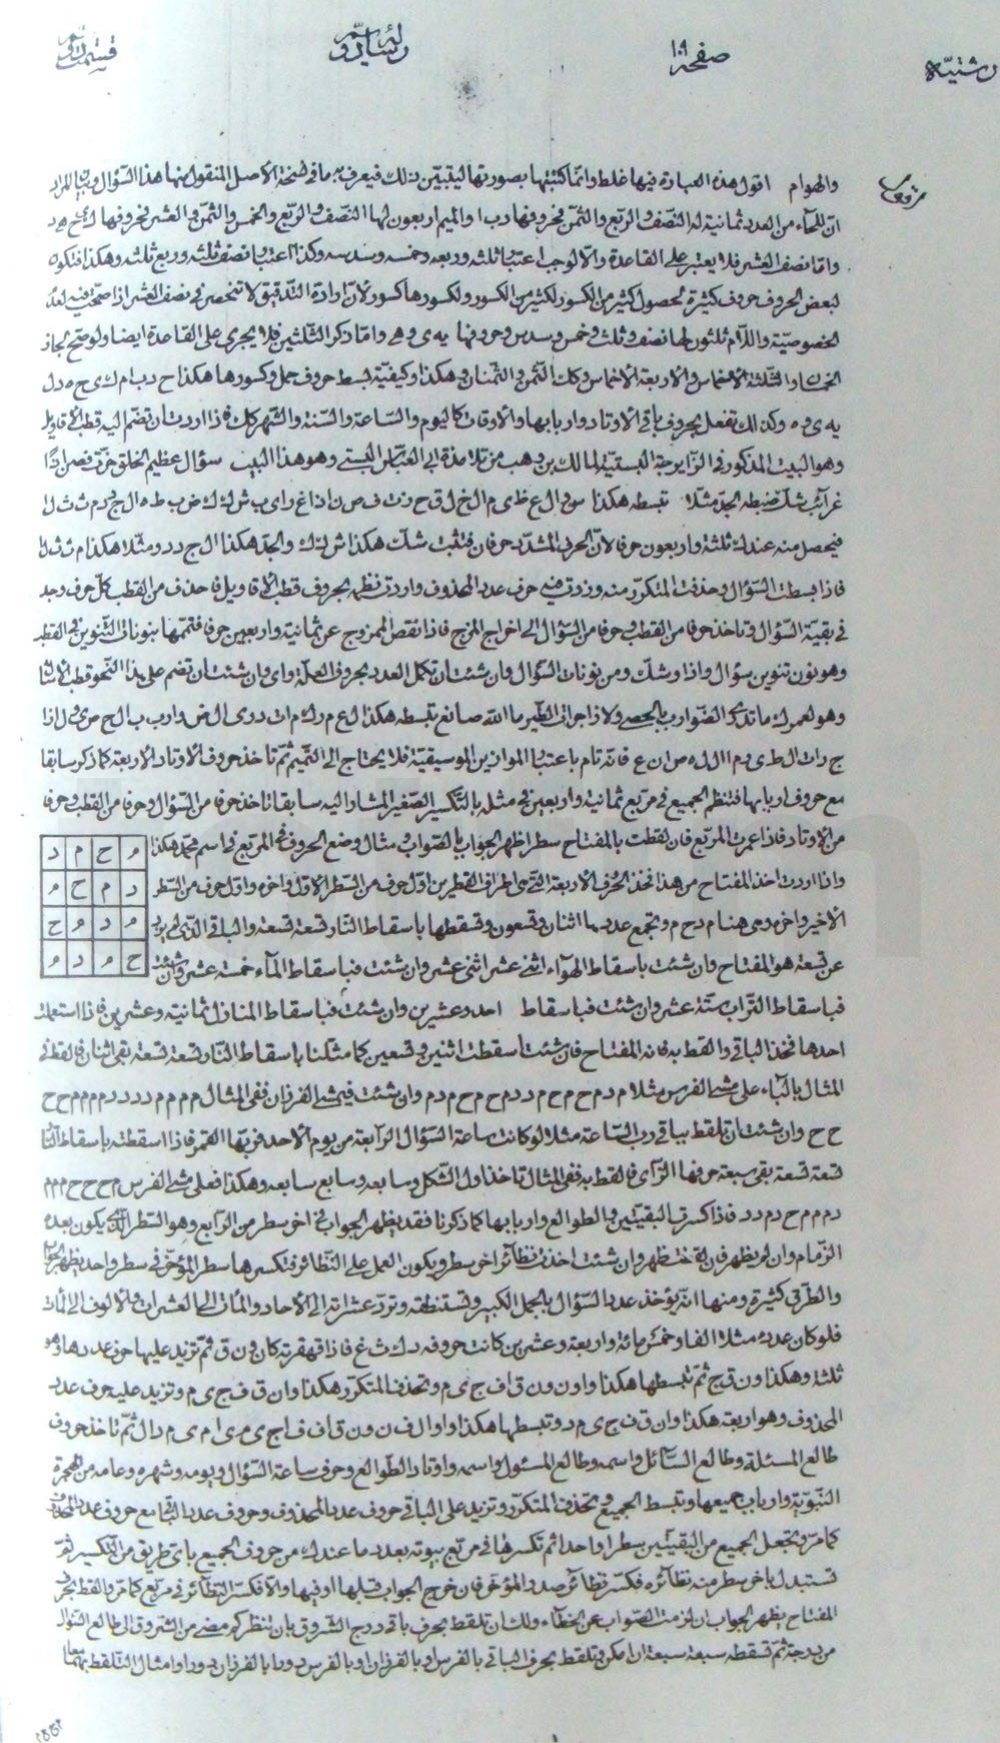 صفحة ١٠١
والهوام اقول هذه العبارة فيها غلط وانما كتبتها بصورتها ليتبيّن ذلك فيعرف به ما في نسخة الأصل المنقول منها هذا السّؤال وبيان المراد
انّ للحاء من العدد ثمانية لها النّصف والرّبع والثّمن فحروفها د ب ا والميم اربعون لها النّصف والرّبع والخمس والثّمن والعشر فحروفها ك ى ح ه د
وامّا نصف العشر فلا يعتبر على القاعدة والّا لوجب اعتبار ثلثه وربعه وخمسه وسدسه وكذا اعتبار نصف ثلثه وربع ثلثه وهكذا فتكون
لبعض الحروف حروف كثيرة لحصول كثير من الكسور لكثير من الكسور ولكسورها كسور لأنّ ارادة التّدقيق لا تنحصر في نصف العشر اذا صحّت فيه لعدم
الخصوصيّة واللّام ثلثون لها نصف وثلث وخمس وسدس وحروفها يه ى و ه وامّا ذكر الثّلثين فلا يجرى على القاعدة ايضا ولو صحّ لجاز
الخمسان والثّلثة الأخماس والأربعة الأخماس وكذا الثّمن والثّمنان وهكذا وكيفيّة بسط حروف حمل وكسورها هكذا ح د ب ا م ك ى ح ه د ل
يه ى و ه وكذلك تفعل بحروف باقى الأوتاد واربابها والأوقات كاليوم والسّاعة والسّنة والشّهر كلّ ذا اردت ان تضمّ اليه قطب الأقاويل
وهو البيت المذكور في الزّايرجة السبتية لمالك بن وهب من تلامذة ابي العبّاس السبتي وهو هذا البيت سؤال عظيم الخلق حزت فصن اذًا
غرآئب شكّ ضبطه الجدّ مثّلا تبسطه هكذا س و ا ل ع ظ ى م ا ل خ ل ق ح ز ت ف ص ن ا ذ ا غ ر ا ى ب ش ك ك ض ب ط ه ا ل ج د د م ث ث ل ا
فيحصل منه عندك ثلثة واربعون حرفا لأنّ الحرف المشدّد حرفان فتثبت شكّ هكذا ش ك ك والجدّ هكذا ا ل ج د د ومثّلا هكذا م ث ث ل ا
فاذا بسطت السّؤال وحذفت المتكرّر منه وزدت فيه حرف عدد المحذوف واردت نظمه بحروف قطب الأقاويل فاحذف من القطب كلّ حرف وجد
في بقيّة السّؤال وتاخذ حرفا من القطب وحرفا من السّؤال الى اخراج المزج فاذا نقص الممزوج عن ثمانية واربعين حرفا فتمّمها بنونات التّنوين في القطب
وهو نون تنوين سؤال واذا وشكّ ومن نونات السّؤال وان شئت ان تكمل العدد بحروف العلّة واى وان شئت ان تضمّ على هذا النّحو قطب الأشال
وهو لعمرك ما تدرى الضّوارب بالحصى ولا زاجرات الطّير ما اللّه صانع تبسطه هكذا ل ع م ر ك م ا ت د ر ى ا ل ض و ا ر ب ب ا ل ح ص ى و ل ا ز ا
ج ر ا ت ا ل ط ى ر م ا ا ل ل ه ص ا ن ع فانّه تام باعتبار الموازين الموسيقيّة فلا يحتاج الى التّتميم ثمّ تاخذ حروف الأوتاد الأربعة كما ذكر سابقا
مع حروف اربابها فتنظم الجميع في مربّع ثمانية واربعين في مثله بالتّكسير الصّغير المشار اليه سابقا تاخذ حرفا من السّؤال وحرفا من القطب وحرفا
من الأوتاد فاذا عمرت المربّع فان لقطت بالمفتاح سطرا ظهر الجواب بالصّواب ومثال وضع الحروف في المربّع في اسم محمّد هكذا
م ح م د
د م ح م
م د م ح
ح م د م
واذا اردت اخذ المفتاح من هذا فخذ الحرف الأربعة الّتي هي اطراف القطرين اوّل حرف من السّطر الأوّل واخره واوّل حرف من السّطر
الأخير واخره وهي هنا م د ح م وتجمع عددها اثنان وتسعون وتسقطها باسقاط النّار تسعة تسعة والباقى الّذي لم يزد
عن تسعة هو المفتاح وان شئت باسقاط الهوآء اثنى عشر اثنى عشر وان شئت فباسقاط المآء خمسة عشر وان شئت
فباسقاط التّراب ستّة عشر وان شئت فباسقاط احد وعشرين وان شئت فباسقاط المنازل ثمانية وعشرين فاذا استعملت
احدها فخذ الباقى والقط به فانه المفتاح فان شئت اسقطت اثنين وتسعين كما مثّلنا باسقاط النّار تسعة تسعة بقى اثنان فالقط في
المثال بالبآء على مشى الفرس مثلا م د م ح م ح م د د م ح م ح م د م وان شئت فبمشى الفرزان ففى المثال م م م م د د د د م م م م ح ح
ح ح وان شئت ان تلقط بباقى ربّ السّاعة مثلا لو كانت ساعة السّؤال الرّابعة من يوم الأحد فربّها القمر فاذا اسقطته باسقاط النّار
تسعة تسعة بقى سبعة حرفها الزّاى فالقط به ففى المثال تاخذ اوّل الشّكل وسابعه وسابع سابعه وهكذا فعلى مشى الفرس م ح ح ح م م م
د م م م ح د م د د فاذا كسرت البقيّتين والطوالع واربابها كما ذكرنا فقد يظهر الجواب في اخر سطر من الرّابع وهو السّطر الّذي يكون بعده
الزّمام وان لم يظهر فان لقطت ظهر وان شئت اخذت نظآئر اخر سطر ويكون العمل على النّظائر فتكسرها سطر المؤخّر في سطر واحد يظهر الجواب
والطّرق كثيرة ومنها انّه يؤخذ عدد السّؤال بالجمل الكبير وتستنطقه وتردّ عشراته الى الأحاد والمئات الى العشرات والألوف الى المئات
فلو كان عدده مثلا الفا وخمسمائة واربعة وعشرين كانت حروفه د ك ث غ فاذا قهقرته كان و ن ق ثمّ تزيد عليها حرف عددها وهو
ثلثة وهكذا و ن ق ج ثمّ تبسطها هكذا و ا و ن و ن ق ا ف ج ى م وتحذف المتكرّر هكذا و ا ن ق ف ج ى م وتزيد عليه حرف عدد
المحذوف وهو اربعة هكذا و ا ن ق ف ج ى م د وتبسطها هكذا و ا و ا ل ف ن و ن ق ا ف ف ا ج ى م ى ا م ى م د ا ل ثمّ تاخذ حروف
طالع المسئلة وطالع السّائل واسمه وطالع المسئول واسمه واوتاد الطّوالع وحرف ساعة السّؤال ويومه وشهره وعامه من الهجرة
النّبويّة وارباب جميعها وتبسط الجميع وتحذف المتكرّر وتزيد على الباقى حروف عدد المحذوف وحروف عدد الباقى مع حروف عدد المحذوف
كما مرّ وتجعل الجميع من البقيّتين سطرا واحدا ثم تكسرها في مربّع بيوته بعدد ما عندك من حروف الجميع باىّ طريق من التّكسير ثمّ
تستبدل باخر سطر منه نظآئره فكسر نظآئر صدر المؤخّر فان خرج الجواب قبلها او فيها والّا فكسر النّظآئر في مربّع كما مرّ والقط بحرف
المفتاح يظهر الجواب ان لزمت الصّواب عن الخطآء ولك ان تلقط بحرف باقى درج الشّروق بان تنظر كم مضى من الشّروق الى طالع السّؤال
من درجة ثم تسقطه سبعة سبعة ان امكن وتلقط بحرف الباقى بالفرس او بالفرزان او بالفرس دورا بالفرزان دورا وامثال التّلقّط بهما معا